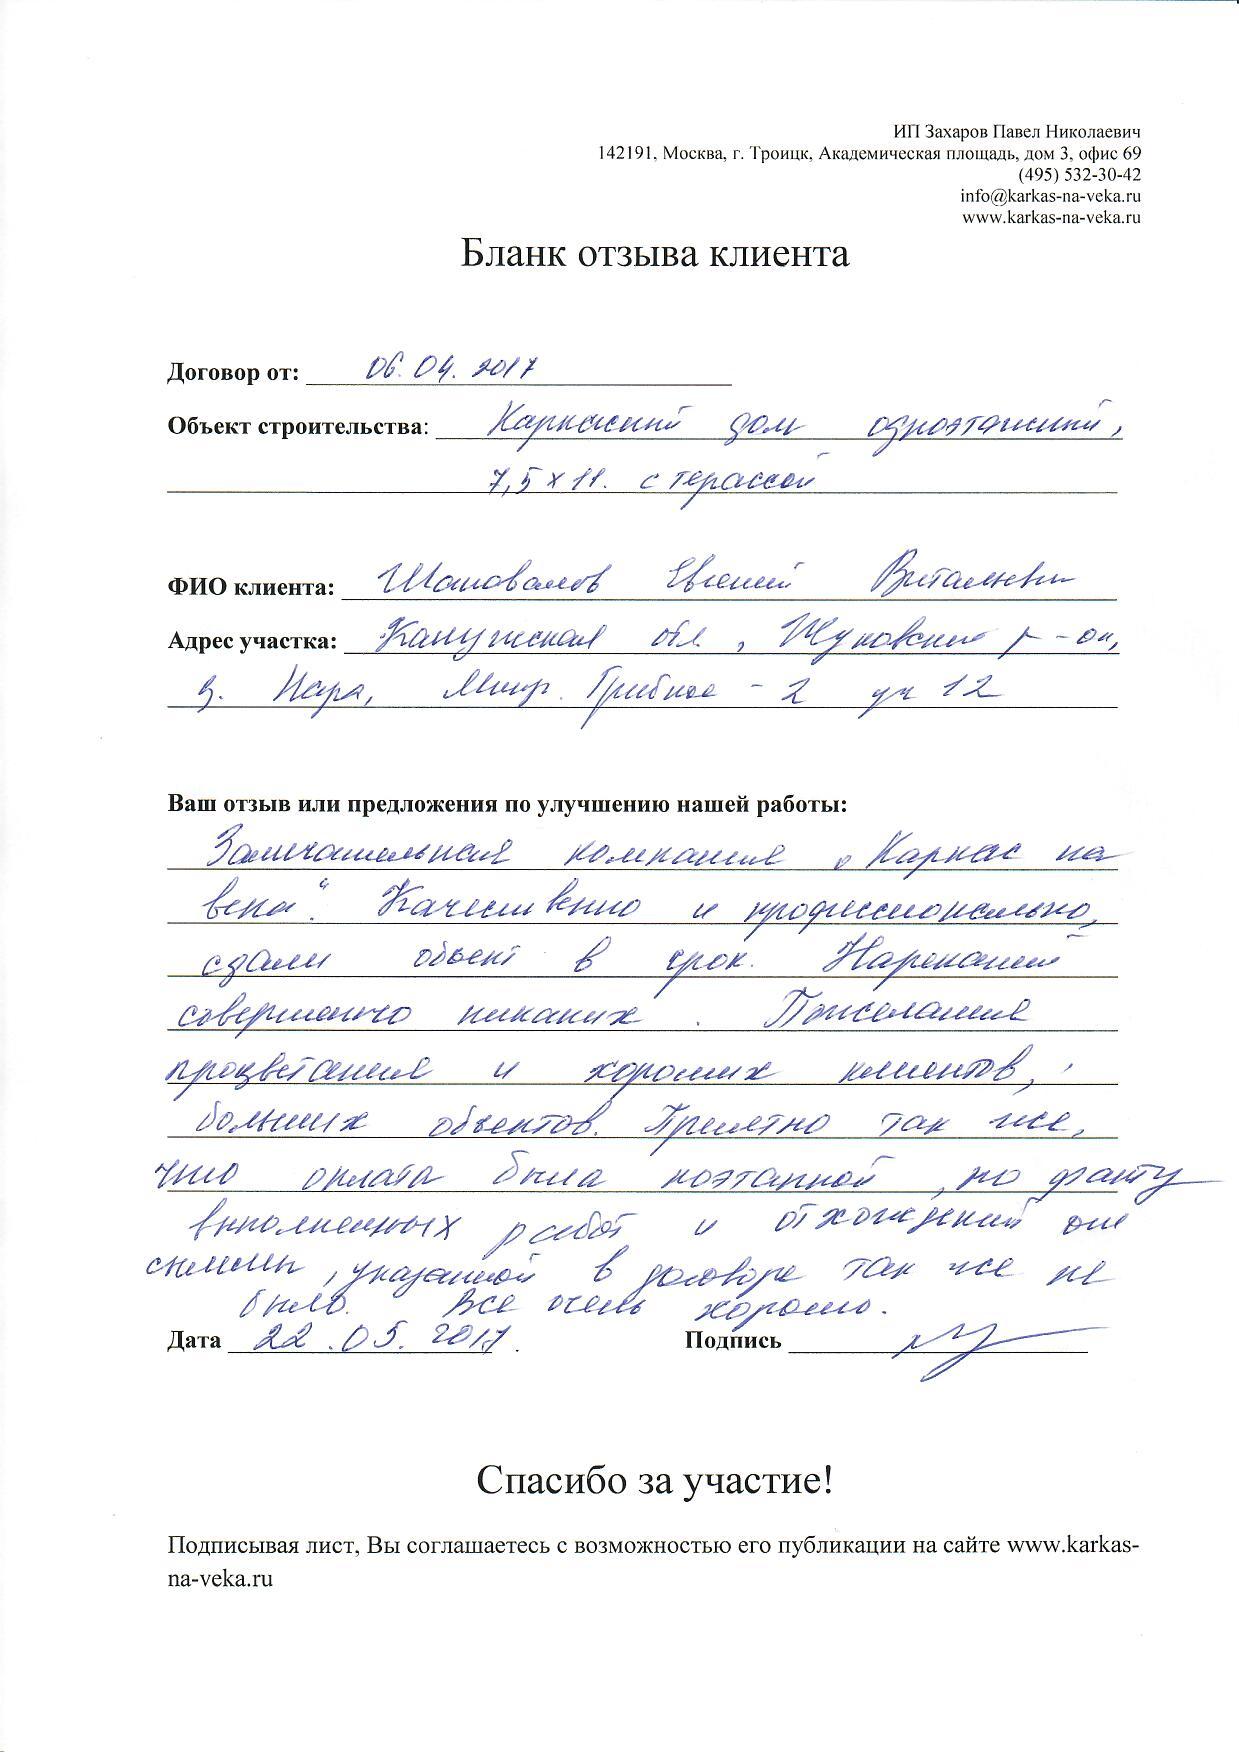 ИП Захаров Павел Николаевич
142191, Москва, г. Троицк, Академическая площадь, дом 3, офис 69
(495) 532-30-42
info@karkas-na-veka.ru
www.karkas-na-veka.ru
Бланк отзыва клиента
Договор от: 06.04.2017
Объект строительства: Каркасный дом одноэтажный,
7,5 x 11. с терассой
ФИО клиента: Шаповалов Евгений Витальевич
Адрес участка: Калужская обл, Жуковский р-он,
д. Нара, Мкр. Грибное - 2 уч 12
Ваш отзыв или предложения по улучшению нашей работы:
Замечательная компания „Каркас на
века“. Качественно и профессионально,
сдали объект в срок. Нареканий
совершенно никаких. Пожелания
процветания и хороших клиентов,
больших объектов. Приятно так же,
что оплата была поэтапной, по факту
выполненных работ и отхождений от
сметы, указанной в договоре так же не
было. Все очень хорошо.
Дата 22.05.2017. Подпись
Спасибо за участие!
Подписывая лист, Вы соглашаетесь с возможностью его публикации на сайте www.karkas-
na-veka.ru